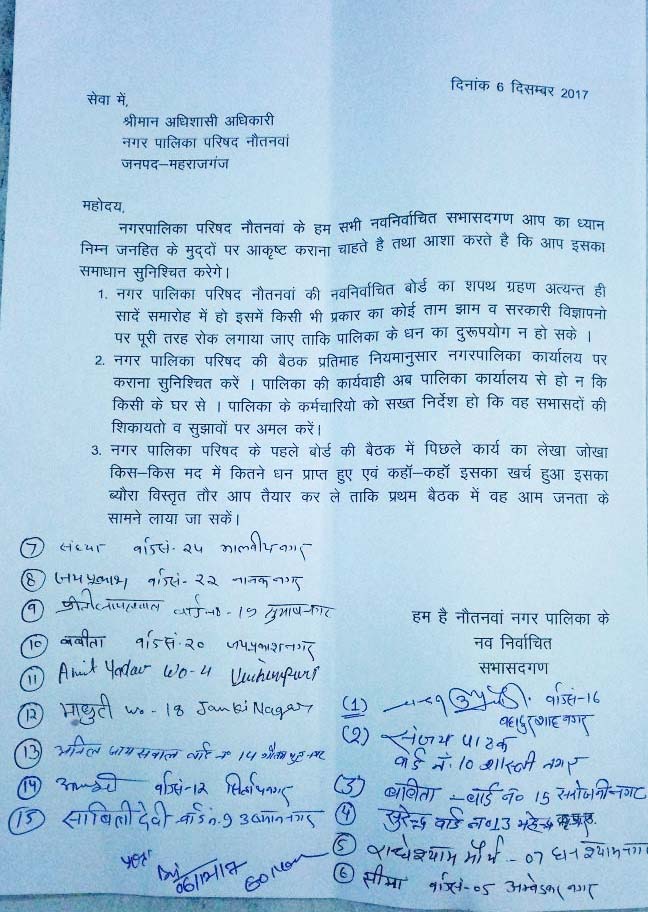 दिनांक 6 दिसम्बर 2017
सेवा में,
श्रीमान अधिशासी अधिकारी
नगर पालिका परिषद नौतनवां
जनपद–महराजगंज
महोदय,
नगरपालिका परिषद नौतनवां के हम सभी नवनिर्वाचित सभासदगण आप का ध्यान
निम्न जनहित के मुद्दों पर आकृष्ट कराना चाहते है तथा आशा करते है कि आप इसका
समाधान सुनिश्चित करेगे।
1. नगर पालिका परिषद नौतनवां की नवनिर्वाचित बोर्ड का शपथ ग्रहण अत्यन्त ही
सादें समारोह में हो इसमें किसी भी प्रकार का कोई ताम झाम व सरकारी विज्ञापनो
पर पूरी तरह रोक लगाया जाए ताकि पालिका के धन का दुरूपयोग न हो सके ।
2. नगर पालिका परिषद की बैठक प्रतिमाह नियमानुसार नगरपालिका कार्यालय पर
कराना सुनिश्चित करें । पालिका की कार्यवाही अब पालिका कार्यालय से हो न कि
किसी के घर से । पालिका के कर्मचारियो को सख्त निर्देश हो कि वह सभासदों की
शिकायतो व सुझावों पर अमल करें।
3. नगर पालिका परिषद के पहले बोर्ड की बैठक में पिछले कार्य का लेखा जोखा
किस–किस मद में कितने धन प्राप्त हुए एवं कहॉ–कहॉ इसका खर्च हुआ इसका
ब्यौरा विस्तृत तौर आप तैयार कर ले ताकि प्रथम बैठक में वह आम जनता के
सामने लाया जा सकें।
हम है नौतनवां नगर पालिका के
नव निर्वाचित
सभासदगण
(1) वार्डसं-16
बहादुरशाह नगर
(2) संजय पाठक
वार्ड नं. 10 शास्त्री नगर
(3) बबिता - वार्ड न० 15 सरोजनीनगर
(4) सुरेन्द्र वार्ड न० 13 महेन्द्र
(5) राधेश्याम मौर्य - 07 घनश्यामनगर
(6) सीमा वार्डसं-05 अम्बेडकर नगर
(7) संध्या वार्डसं-24 मालवीयनगर
(8) जयप्रकाश वार्डसं-22 नानकनगर
(9) वार्ड न०-19 सुभाषनगर
(10) बबीता वार्डसं-20 जयप्रकाशनगर
(11) Amit Yadav Wo-4
(12) माधुरी Wo-18 Janki Nagar
(13) अनिल जायसवाल वार्ड न० 14
(14) वार्डसं-12
(15) सावित्री देवी वार्ड न. 9